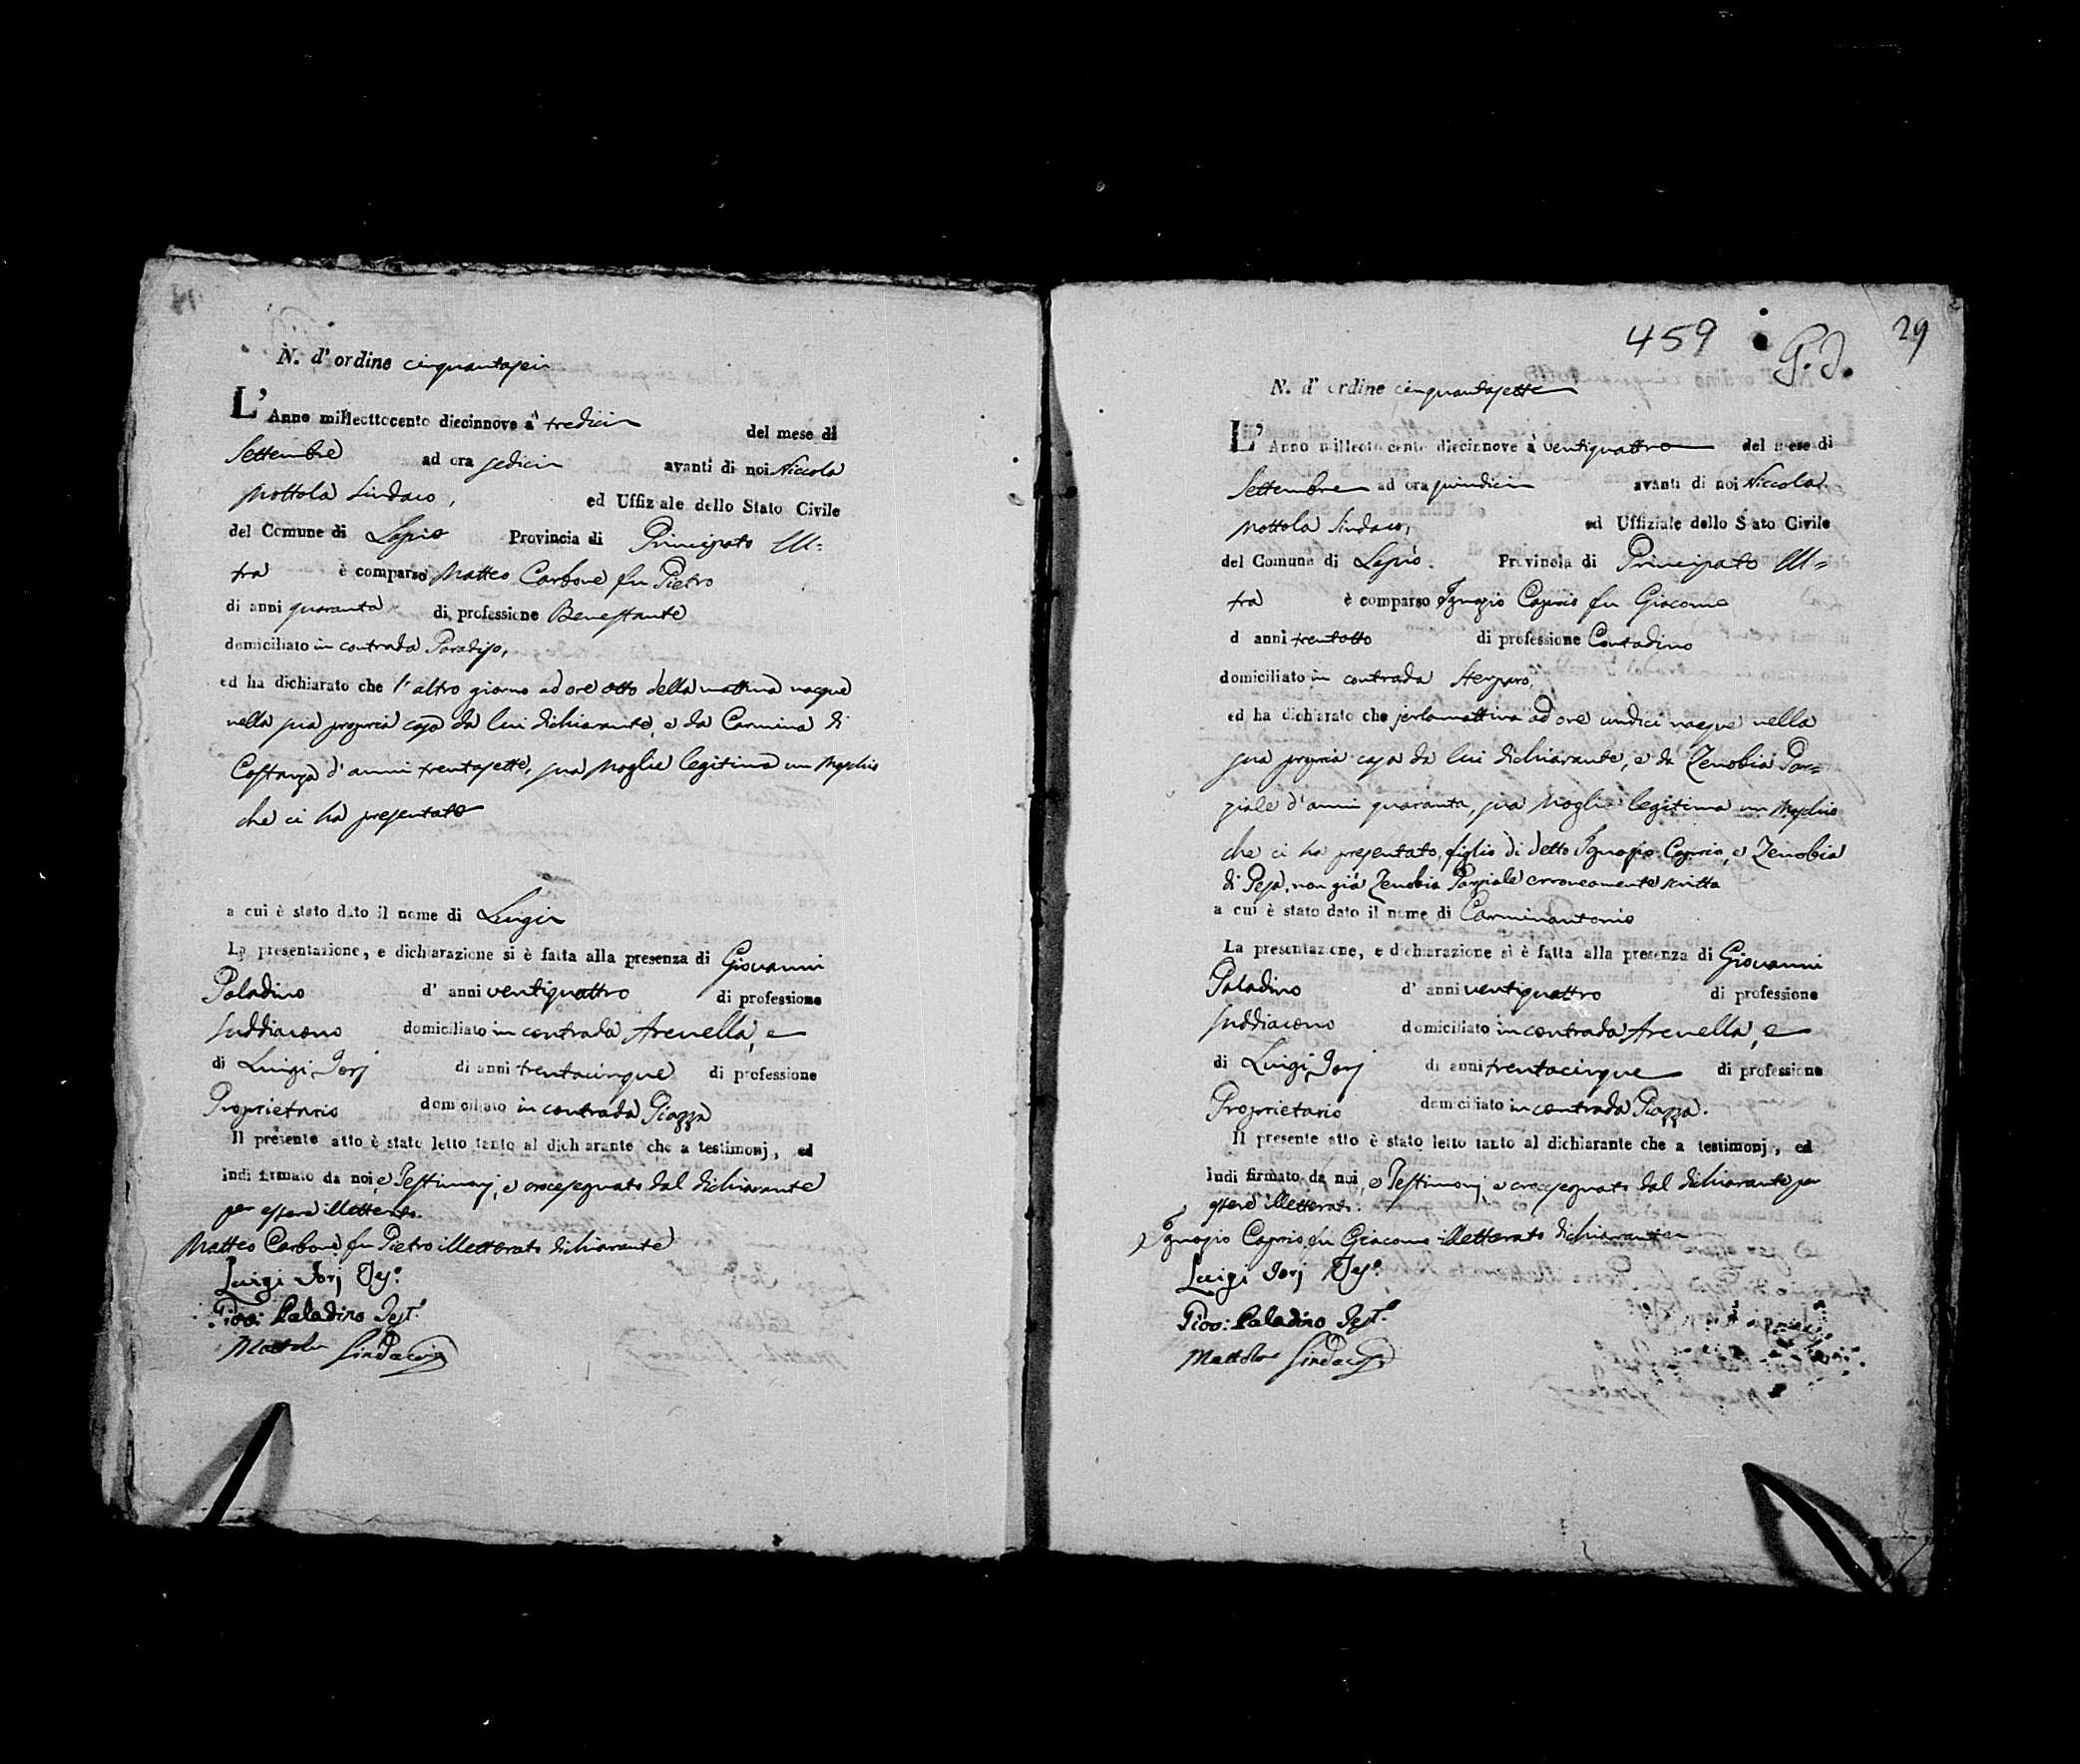 N. d' ordine cinquantasei
L' Anno milleottocento diecinnove à tredici del mese di
Settembre ad ora sedici avanti di noi Niccola
Mottola Sindaco, ed Uffiziale dello Stato Civile
del Comune di Lapio Provincia di Principato Ul=
tra è comparso Matteo Carbone fu Pietro
di anni quaranta di professione Benestante
domiciliato in contrada Paradiso,
ed ha dichiarato che l'altro giorno ad ore otto della mattina nacque
nella sua propria casa da lui dichiarante, e da Carmina di
Costanza d'anni trentasette, sua Moglie legitima un Maschio
che ci ha presentato
a cui è stato dato il nome di Luigi
La presentazione, e dichiarazione si è fatta alla presenza di Giovanni
Paladino d' anni ventiquattro di professione
Suddiacono domiciliato in contrada Arenella, e
di Luigi Iorj di anni trentacinque di professione
Proprietario domiciliato in contrada Piazza
Il presente atto è stato letto tanto al dichiarante che a testimonj, ed
indi firmato da noi, e Testimonj, e crocesegnato dal dichiarante
per essere illetterato.
Matteo Carbone fu Pietro illetterato dichiarante
Luigi Iorj Tes.º
Giov: Paladino Test.º
Mottola Sindaco
459 G. J. 29
N. d' ordine cinquantasette
L' Anno milleottocento diecinnove à ventiquattro del mese di
Settembre ad ora quindici avanti di noi Niccola
Mottola Sindaco, ed Uffiziale dello Stato Civile
del Comune di Lapio. Provincia di Principato Ul=
tra è comparso Ignazio Caprio fu Giacomo
d anni trentotto di professione Contadino
domiciliato in contrada Sterparo,
ed ha dichiarato che jerlamattina ad ore undici nacque nella
sua propria casa da lui dichiarante, e da Zenobia Par=
ziale d'anni quaranta, sua Moglie legitima un Maschio
che ci ha presentato, figlio di detto Ignazio Caprio, e Zenobia
di Pesa, non già Zenobia Parziale erroneamente scritta
a cui è stato dato il nome di Carminantonio
La presentazione, e dichiarazione si è fatta alla presenza di Giovanni
Paladino d' anni ventiquattro di professione
Suddiacono domiciliato in contrada Arenella, e
di Luigi Iorj di anni trentacinque di professione
Proprietario domiciliato in contrada Piazza.
Il presente atto è stato letto tanto al dichiarante che a testimonj, ed
indi firmato da noi, e Testimonj e crocesegnato dal dichiarante per
essere illetterato.
Ignazio Caprio fu Giacomo illetterato dichiarante
Luigi Iorj Tes.º
Giov: Paladino Test.º
Mottola Sindaco